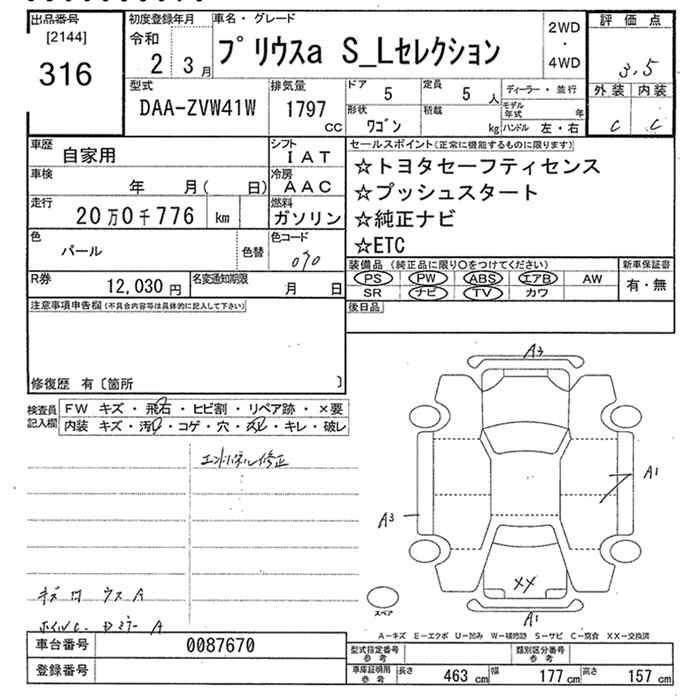 出品番号
[2144]
316
初度登録年月
令和
2 3月
車名・グレード
プリウスa S_Lセレクション
2WD
・
4WD
評価点
3.5
外装 内装
C C
型式
DAA-ZVW41W
排気量
1797
CC
ドア
5
定員
5 人
形状
ワゴン
積載
kg
ディーラー・並行
モデル年式 年
ハンドル 左・右
車歴
自家用
シフト
IAT
車検
年 月( 日)
冷房
AAC
走行
20万0千776 km
燃料
ガソリン
色
パール
色替
色コード
070
R券
12,030円
名変通知期限
月 日
セールスポイント(正常に機能するものに限ります)
☆トヨタセーフティセンス
☆プッシュスタート
☆純正ナビ
☆ETC
装備品 (純正品に限り○をつけてください)
PS PW ABS エアB AW
SR ナビ TV カワ
新車保証書
有・無
後日品
注意事項申告欄(不具合内容等は具体的に記入して下さい)
修復歴 有〔箇所 〕
検査員記入欄
FW キズ・飛石・ヒビ割・リペア跡・×要
内装 キズ・汚れ・コゲ・穴・・キレ・破レ
エンドパネル修正
キズ 凹 ウス A
ホイルC A
A3
A1
A3
XX
A1
スペア
A-キズ E-エクボ U-凹み W-補修跡 S-サビ C-腐食 XX-交換済
車台番号
0087670
登録番号
型式指定番号
参考
類別区分番号
参考
車庫証明用
参考
長さ 463 cm 幅 177 cm 高さ 157 cm